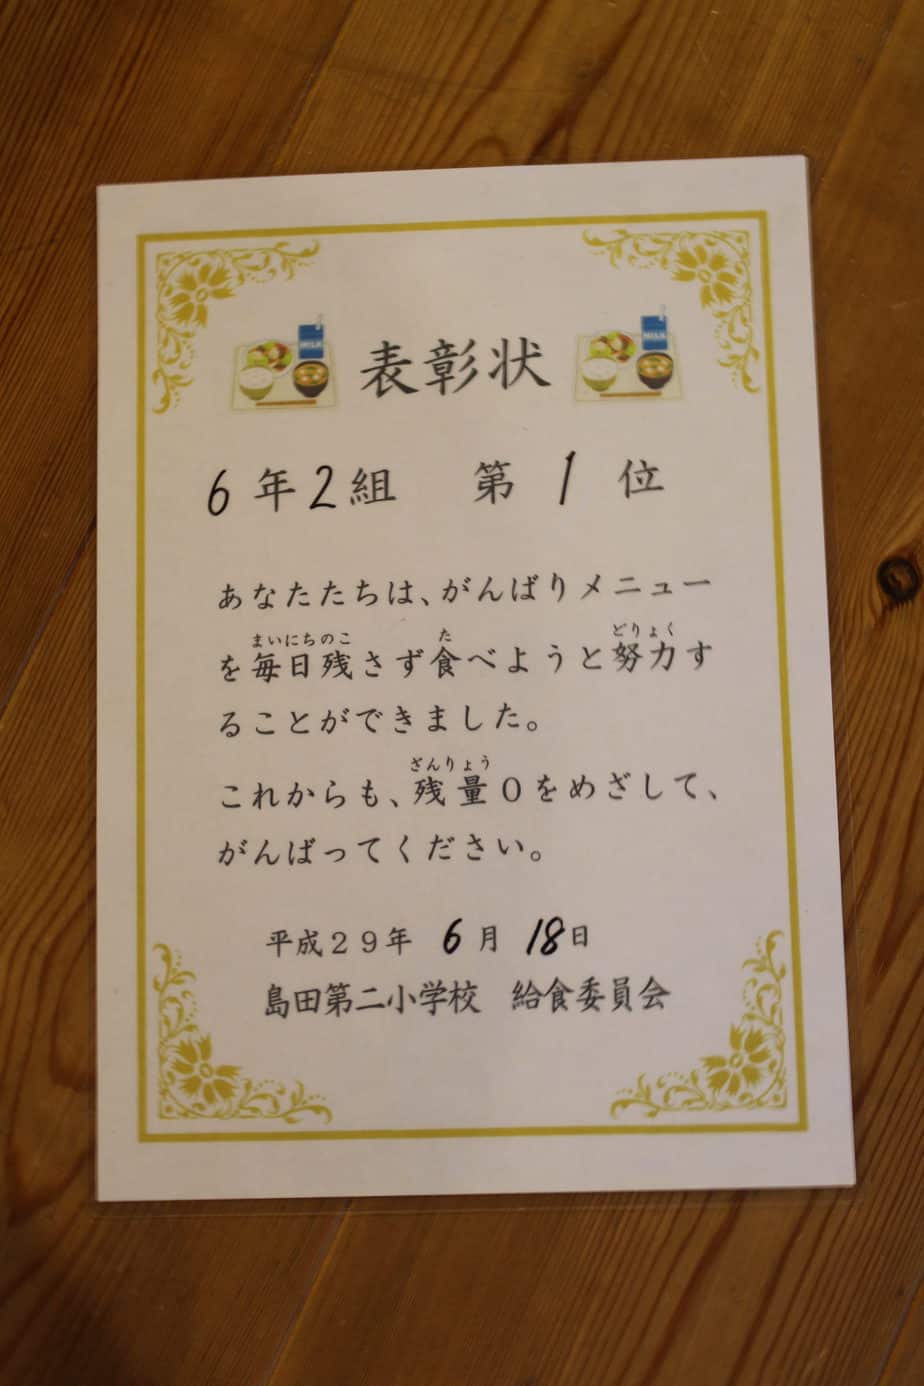 MILK
表彰状
MILK
6年2組 第1位
あなたたちは、がんばりメニュー
まいにちのこ た どりょく
を毎日残さず食べようと努力す
ることができました。
ざんりょう
これからも、残量0をめざして、
がんばってください。
平成29年 6月 18日
島田第二小学校 給食委員会